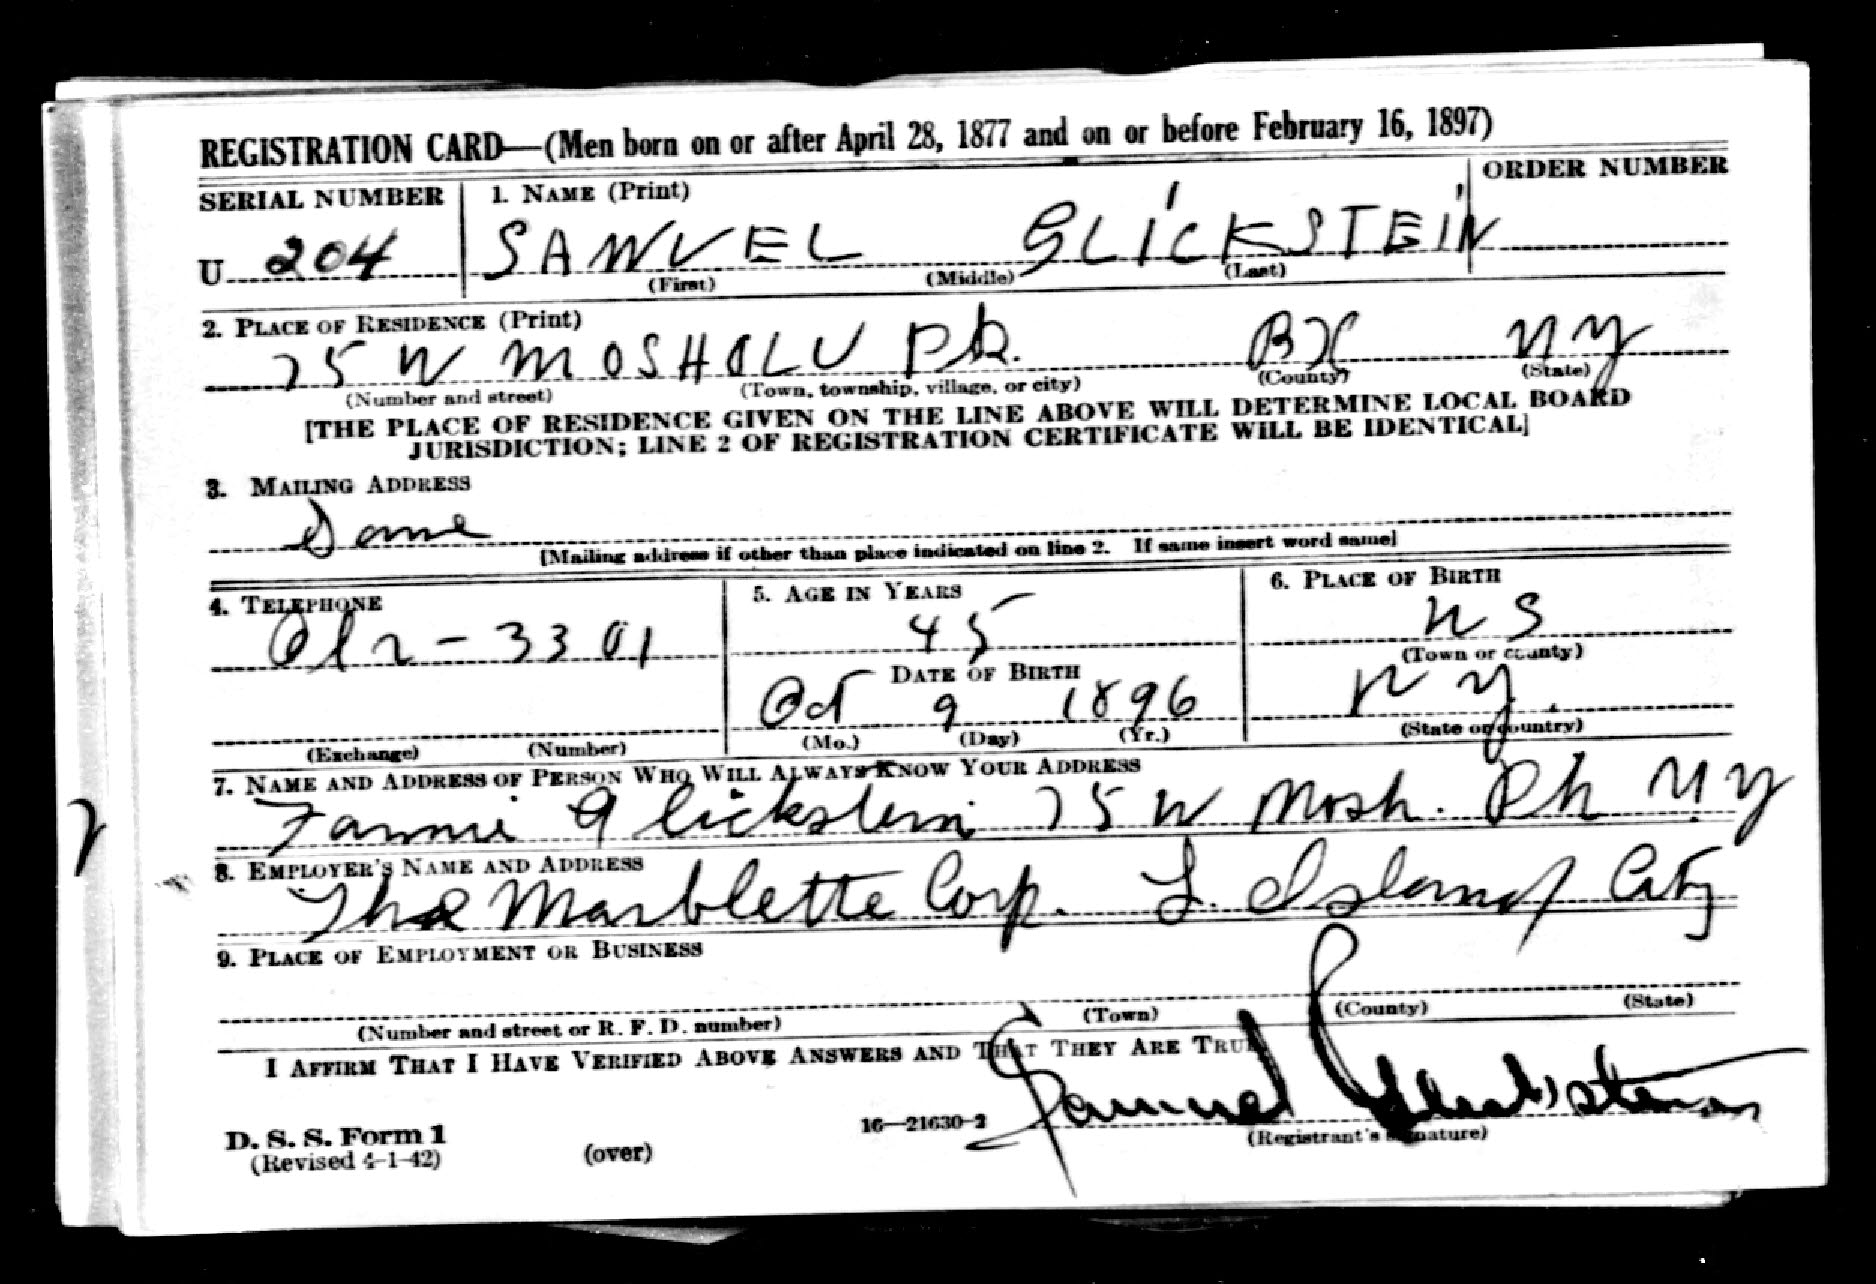 REGISTRATION CARD—(Men born on or after April 28, 1877 and on or before February 16, 1897)
SERIAL NUMBER
1. NAME (Print)
ORDER NUMBER
U 204
SAMUEL GLICKSTEIN
(First) (Middle) (Last)
2. PLACE OF RESIDENCE (Print)
75 W MOSHOLU PK. BX NY
(Number and street) (Town, township, village, or city) (County) (State)
[THE PLACE OF RESIDENCE GIVEN ON THE LINE ABOVE WILL DETERMINE LOCAL BOARD
JURISDICTION; LINE 2 OF REGISTRATION CERTIFICATE WILL BE IDENTICAL]
3. MAILING ADDRESS
Same
[Mailing address if other than place indicated on line 2. If same insert word same]
4. TELEPHONE
5. AGE IN YEARS
6. PLACE OF BIRTH
Ol 2-3301
45
(Town or county)
DATE OF BIRTH
Oct 9 1896
N Y.
(Exchange) (Number)
(Mo.) (Day) (Yr.)
(State or country)
7. NAME AND ADDRESS OF PERSON WHO WILL ALWAYS KNOW YOUR ADDRESS
Fannie Glickstein 75 W Mosh. Pk N.Y
8. EMPLOYER'S NAME AND ADDRESS
The Marblette Corp. L. Island City
9. PLACE OF EMPLOYMENT OR BUSINESS
(Number and street or R. F. D. number) (Town) (County) (State)
I AFFIRM THAT I HAVE VERIFIED ABOVE ANSWERS AND THAT THEY ARE TRUE
Samuel Glickstein
D. S. S. Form 1
(Revised 4-1-42)
(over)
16—21630-2
(Registrant's signature)